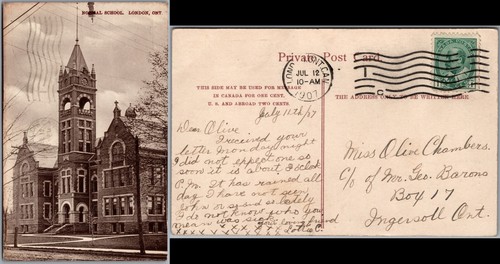 NORMAL SCHOOL. LONDON, ONT.
Private Post Card.
THIS SIDE MAY BE USED FOR MESSAGE
IN CANADA FOR ONE CENT.
U. S. AND ABROAD TWO CENTS.
THE ADDRESS ONLY TO BE WRITTEN HERE
LONDON, ONT. CAN.
JUL 12
10-AM
1907
July 11th/07
Dear Olive
I received your
letter Monday night
I did not expect one so
soon it is about 7 o'clock
P.M. It has rained all
day I have not seen
John or syd so lately
I do not know who you
mean was sick
your loving friend
Lottie C.
x x x x x x x x x x
Miss Olive Chambers.
C/o of Mr. Geo. Barons
Box 17
Ingersoll Ont.